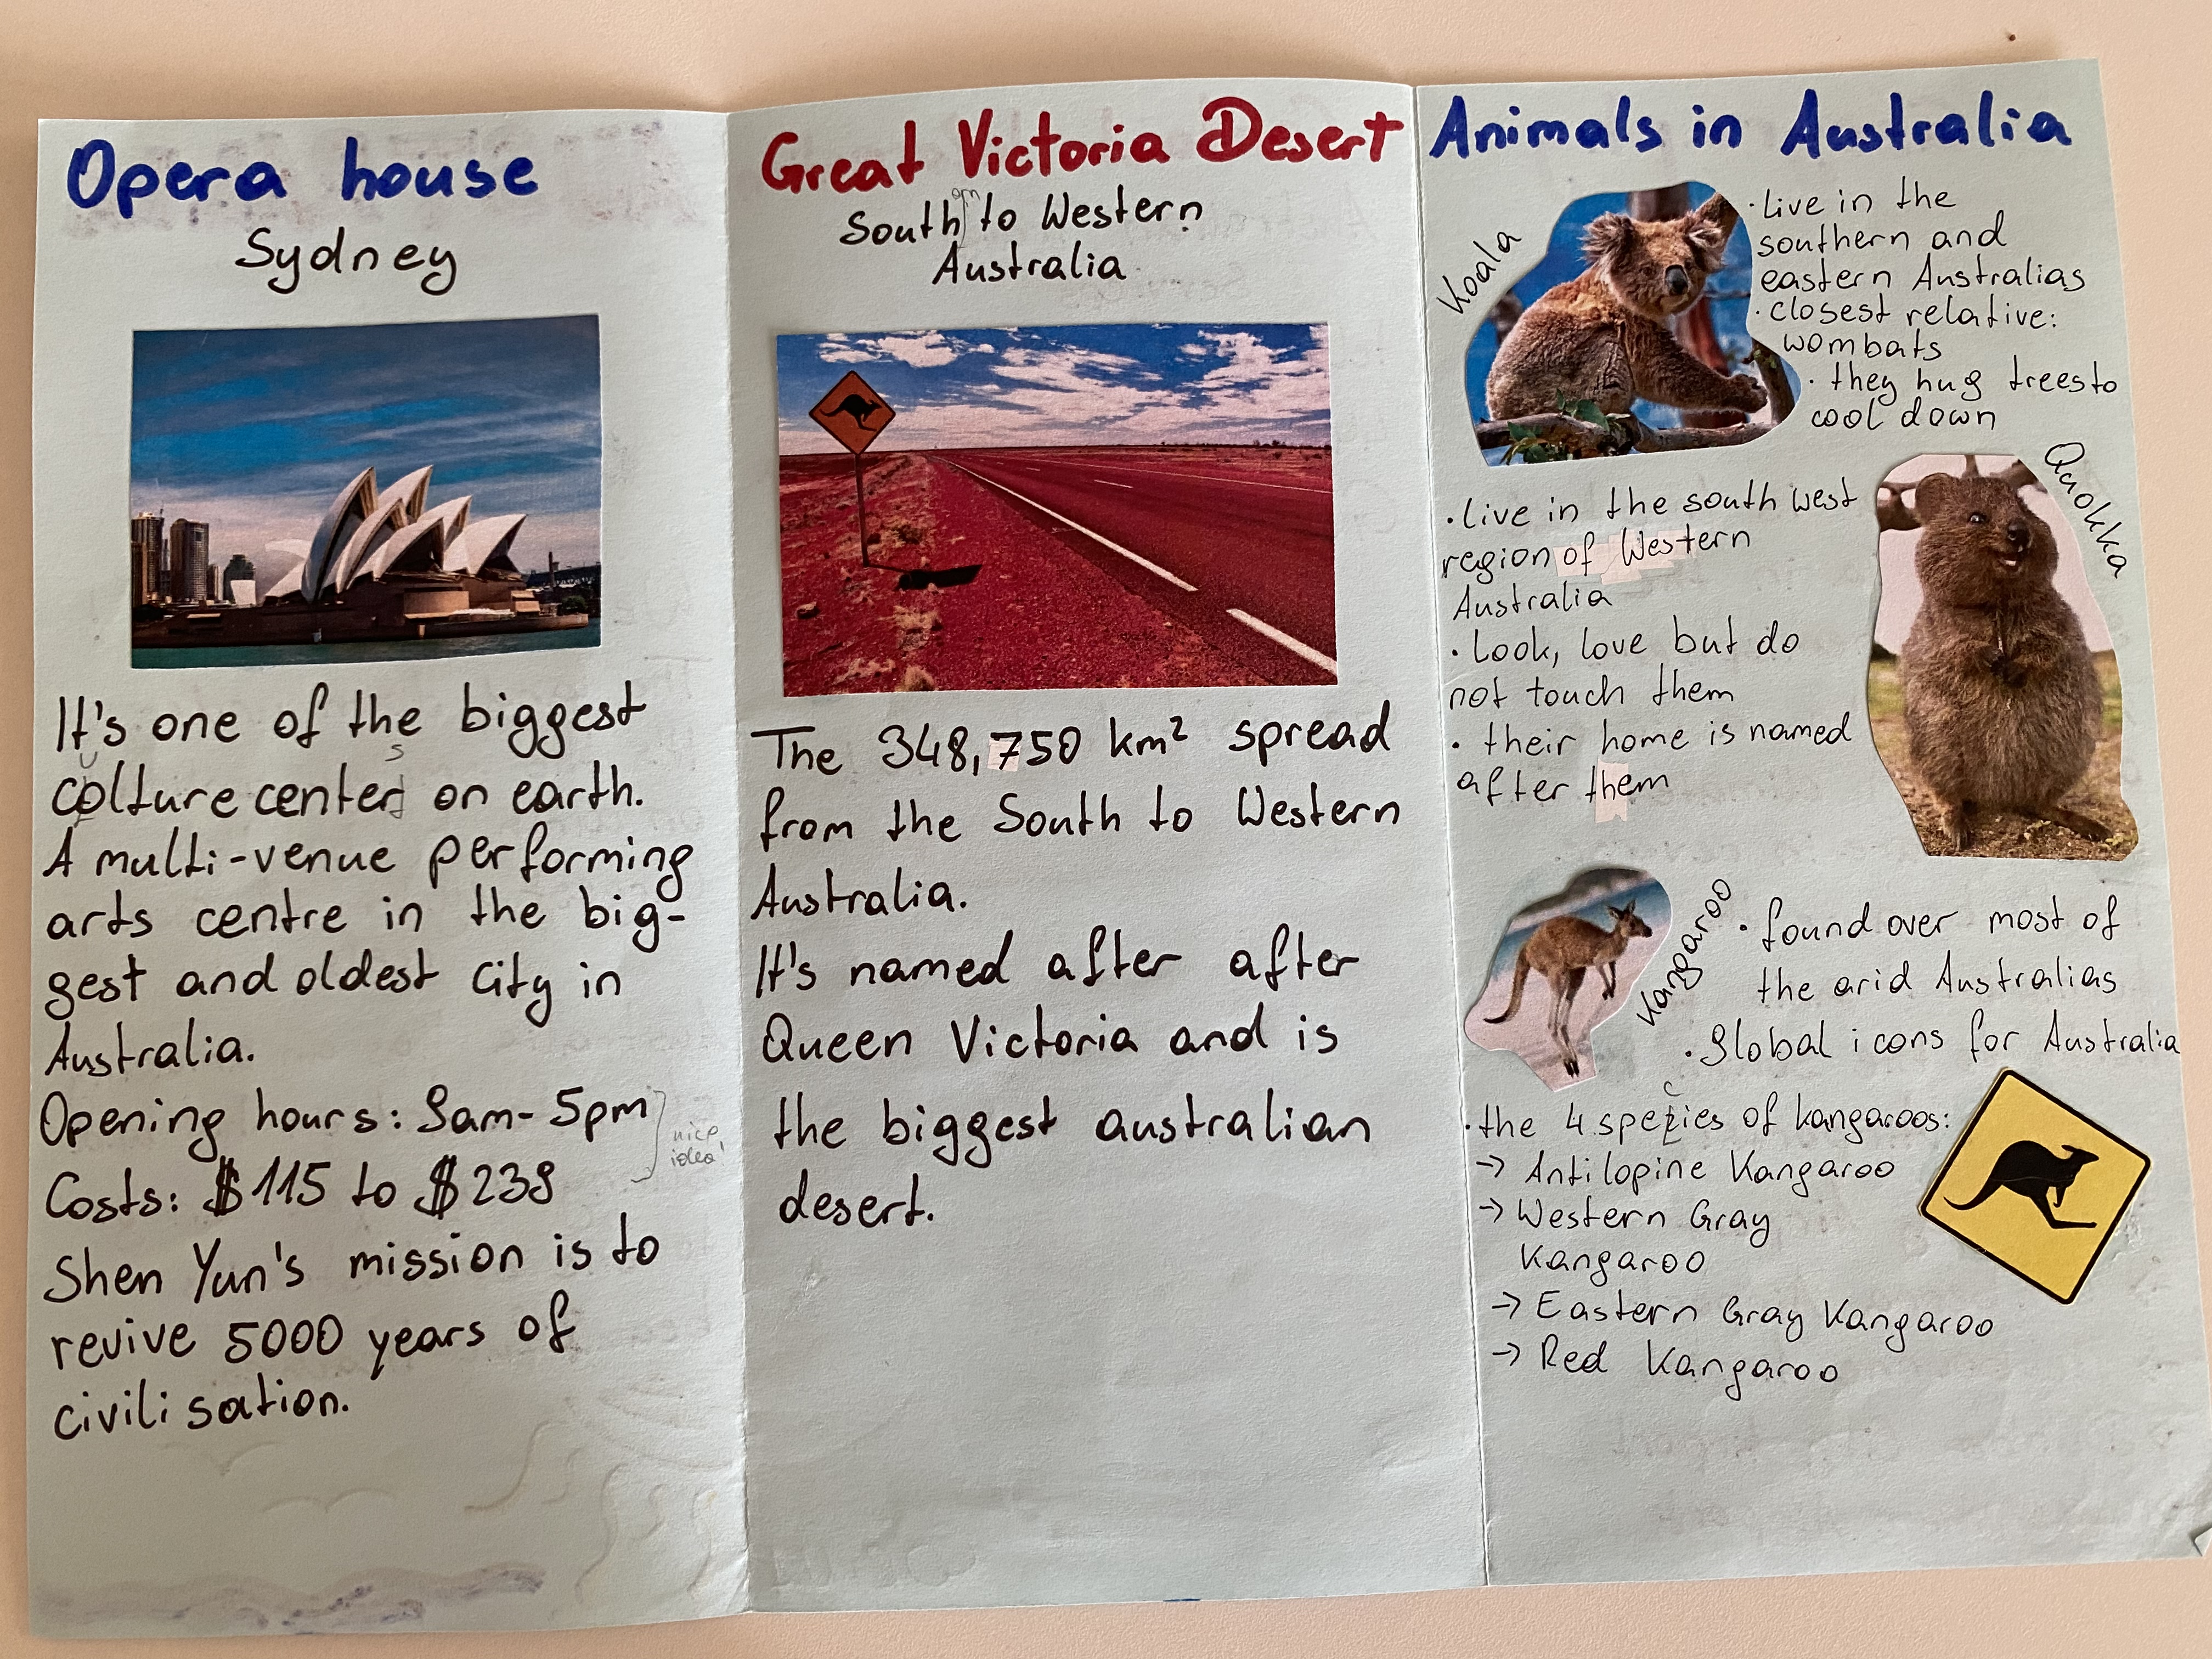 Opera house
Sydney
It's one of the biggest
colture center on earth.
A multi-venue performing
arts centre in the big-
gest and oldest city in
Australia.
Opening hours: 9am- 5pm
nice
idea!
Costs: $115 to $239
Shen Yun's mission is to
revive 5000 years of
civilisation.
Great Victoria Desert
South to Western
Australia
The 348,750 km² spread
from the South to Western
Australia.
It's named after after
Queen Victoria and is
the biggest australian
desert.
Animals in Australia
Koala
· live in the
southern and
eastern Australias
· closest relative:
wombats
· they hug trees to
cool down
Quokka
· live in the south west
region of Western
Australia
· Look, love but do
not touch them
· their home is named
after them
Kangaroo
· found over most of
the arid Australias
· Global icons for Australia
· the 4 spezies of kangaroos:
→ Antilopine Kangaroo
→ Western Gray
Kangaroo
→ Eastern Gray Kangaroo
→ Red Kangaroo